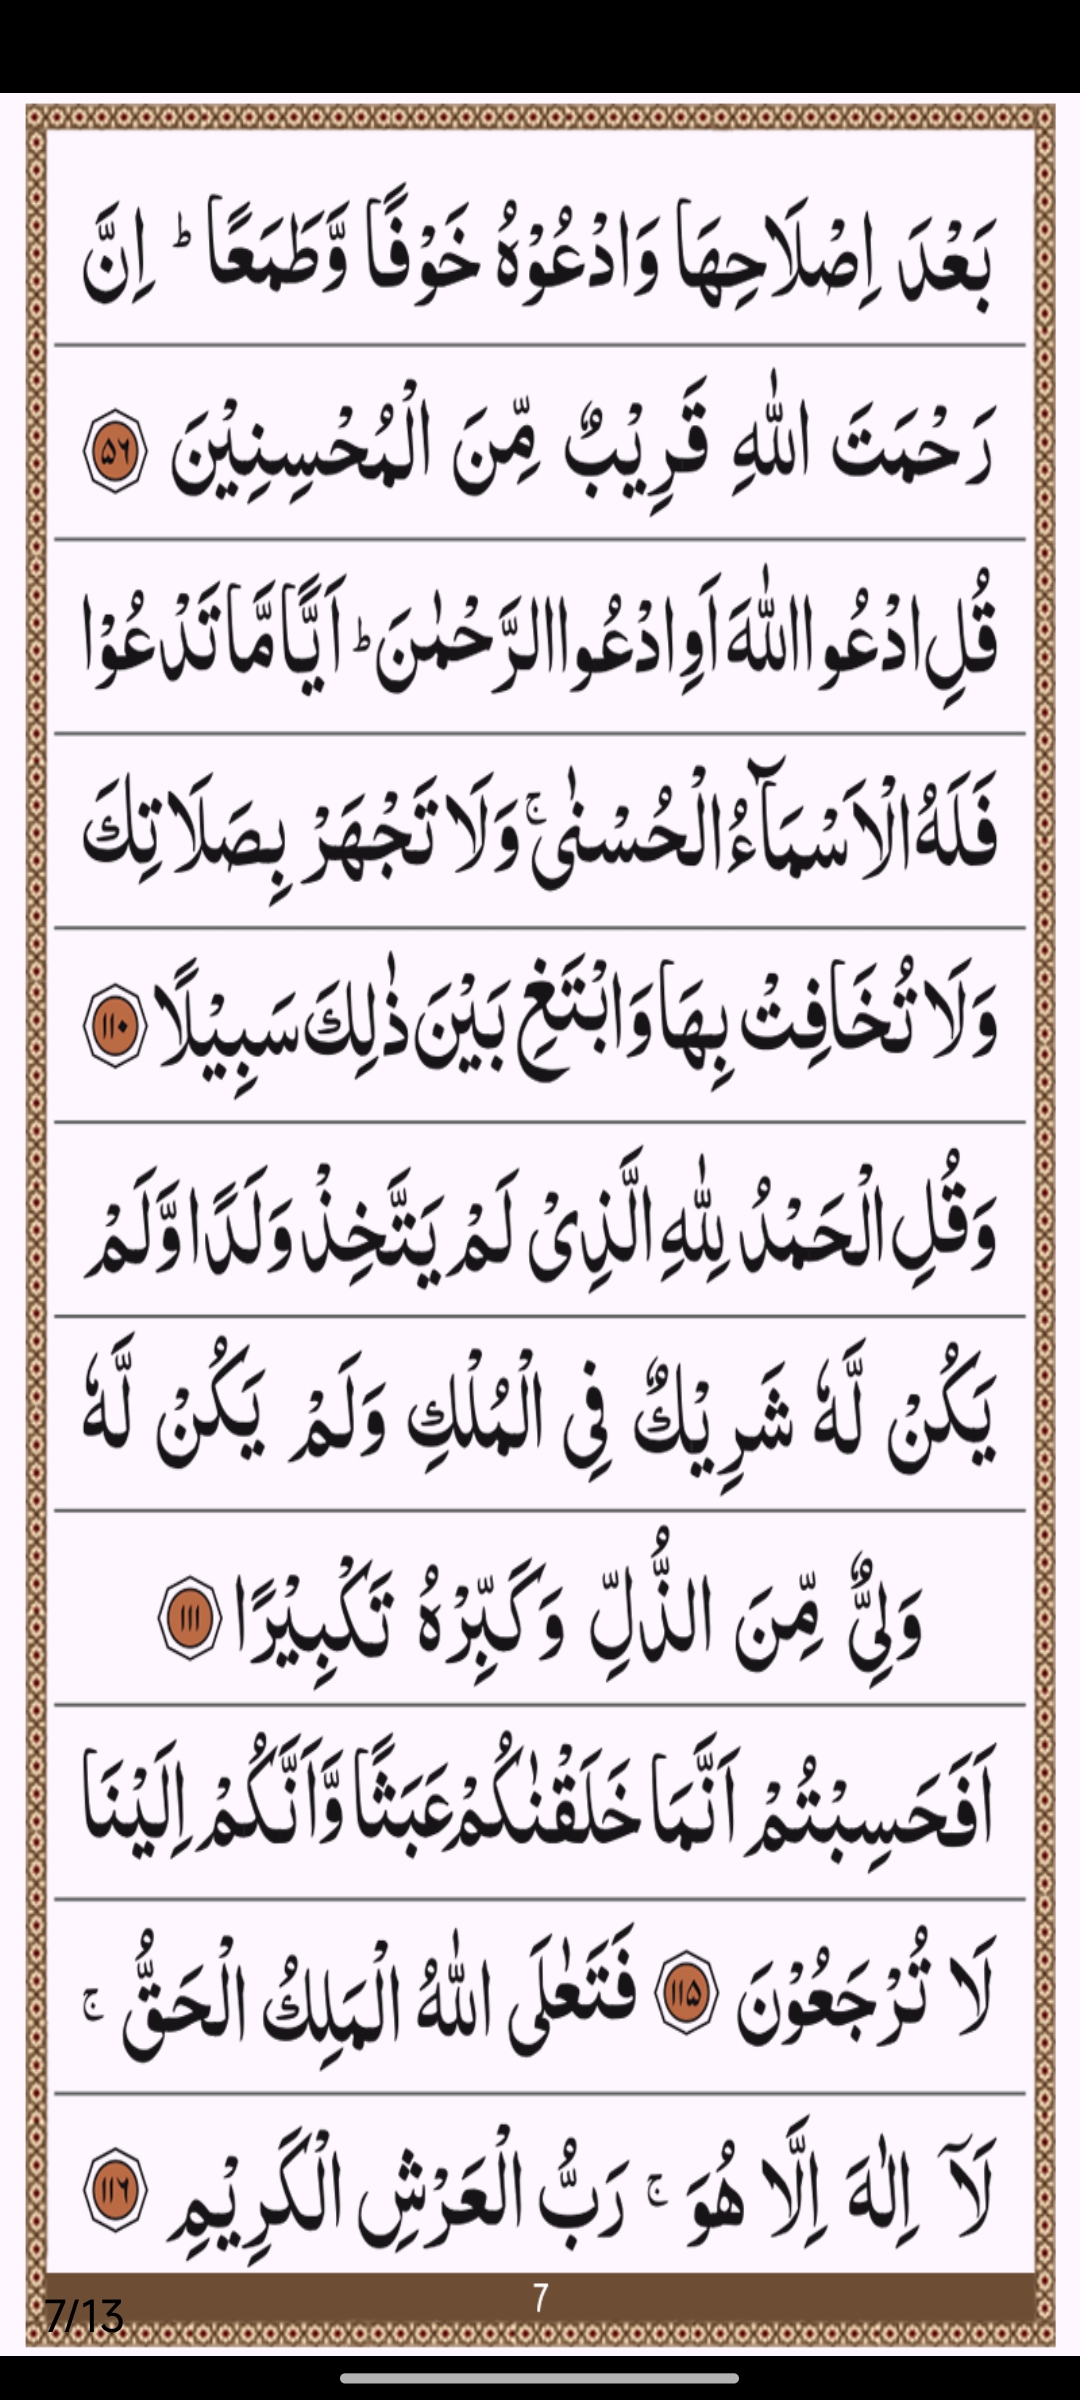 بَعْدَ اِصْلَاحِهَا وَادْعُوْهُ خَوْفًا وَّطَمَعًا ؕ اِنَّ
رَحْمَتَ اللّٰهِ قَرِيْبٌ مِّنَ الْمُحْسِنِيْنَ ۵۶
قُلِ ادْعُوا اللّٰهَ اَوِ ادْعُوا الرَّحْمٰنَ ؕ اَيًّا مَّا تَدْعُوْا
فَلَهُ الْاَسْمَآءُ الْحُسْنٰى ۚ وَلَا تَجْهَرْ بِصَلَاتِكَ
وَلَا تُخَافِتْ بِهَا وَابْتَغِ بَيْنَ ذٰلِكَ سَبِيْلًا ۱۱۰
وَقُلِ الْحَمْدُ لِلّٰهِ الَّذِىْ لَمْ يَتَّخِذْ وَلَدًا وَّلَمْ
يَكُنْ لَّهٗ شَرِيْكٌ فِى الْمُلْكِ وَلَمْ يَكُنْ لَّهٗ
وَلِىٌّ مِّنَ الذُّلِّ وَكَبِّرْهُ تَكْبِيْرًا ۱۱۱
اَفَحَسِبْتُمْ اَنَّمَا خَلَقْنٰكُمْ عَبَثًا وَّاَنَّكُمْ اِلَيْنَا
لَا تُرْجَعُوْنَ ۱۱۵ فَتَعٰلَى اللّٰهُ الْمَلِكُ الْحَقُّ ۚ
لَآ اِلٰهَ اِلَّا هُوَ ۚ رَبُّ الْعَرْشِ الْكَرِيْمِ ۱۱۶
7
7/13